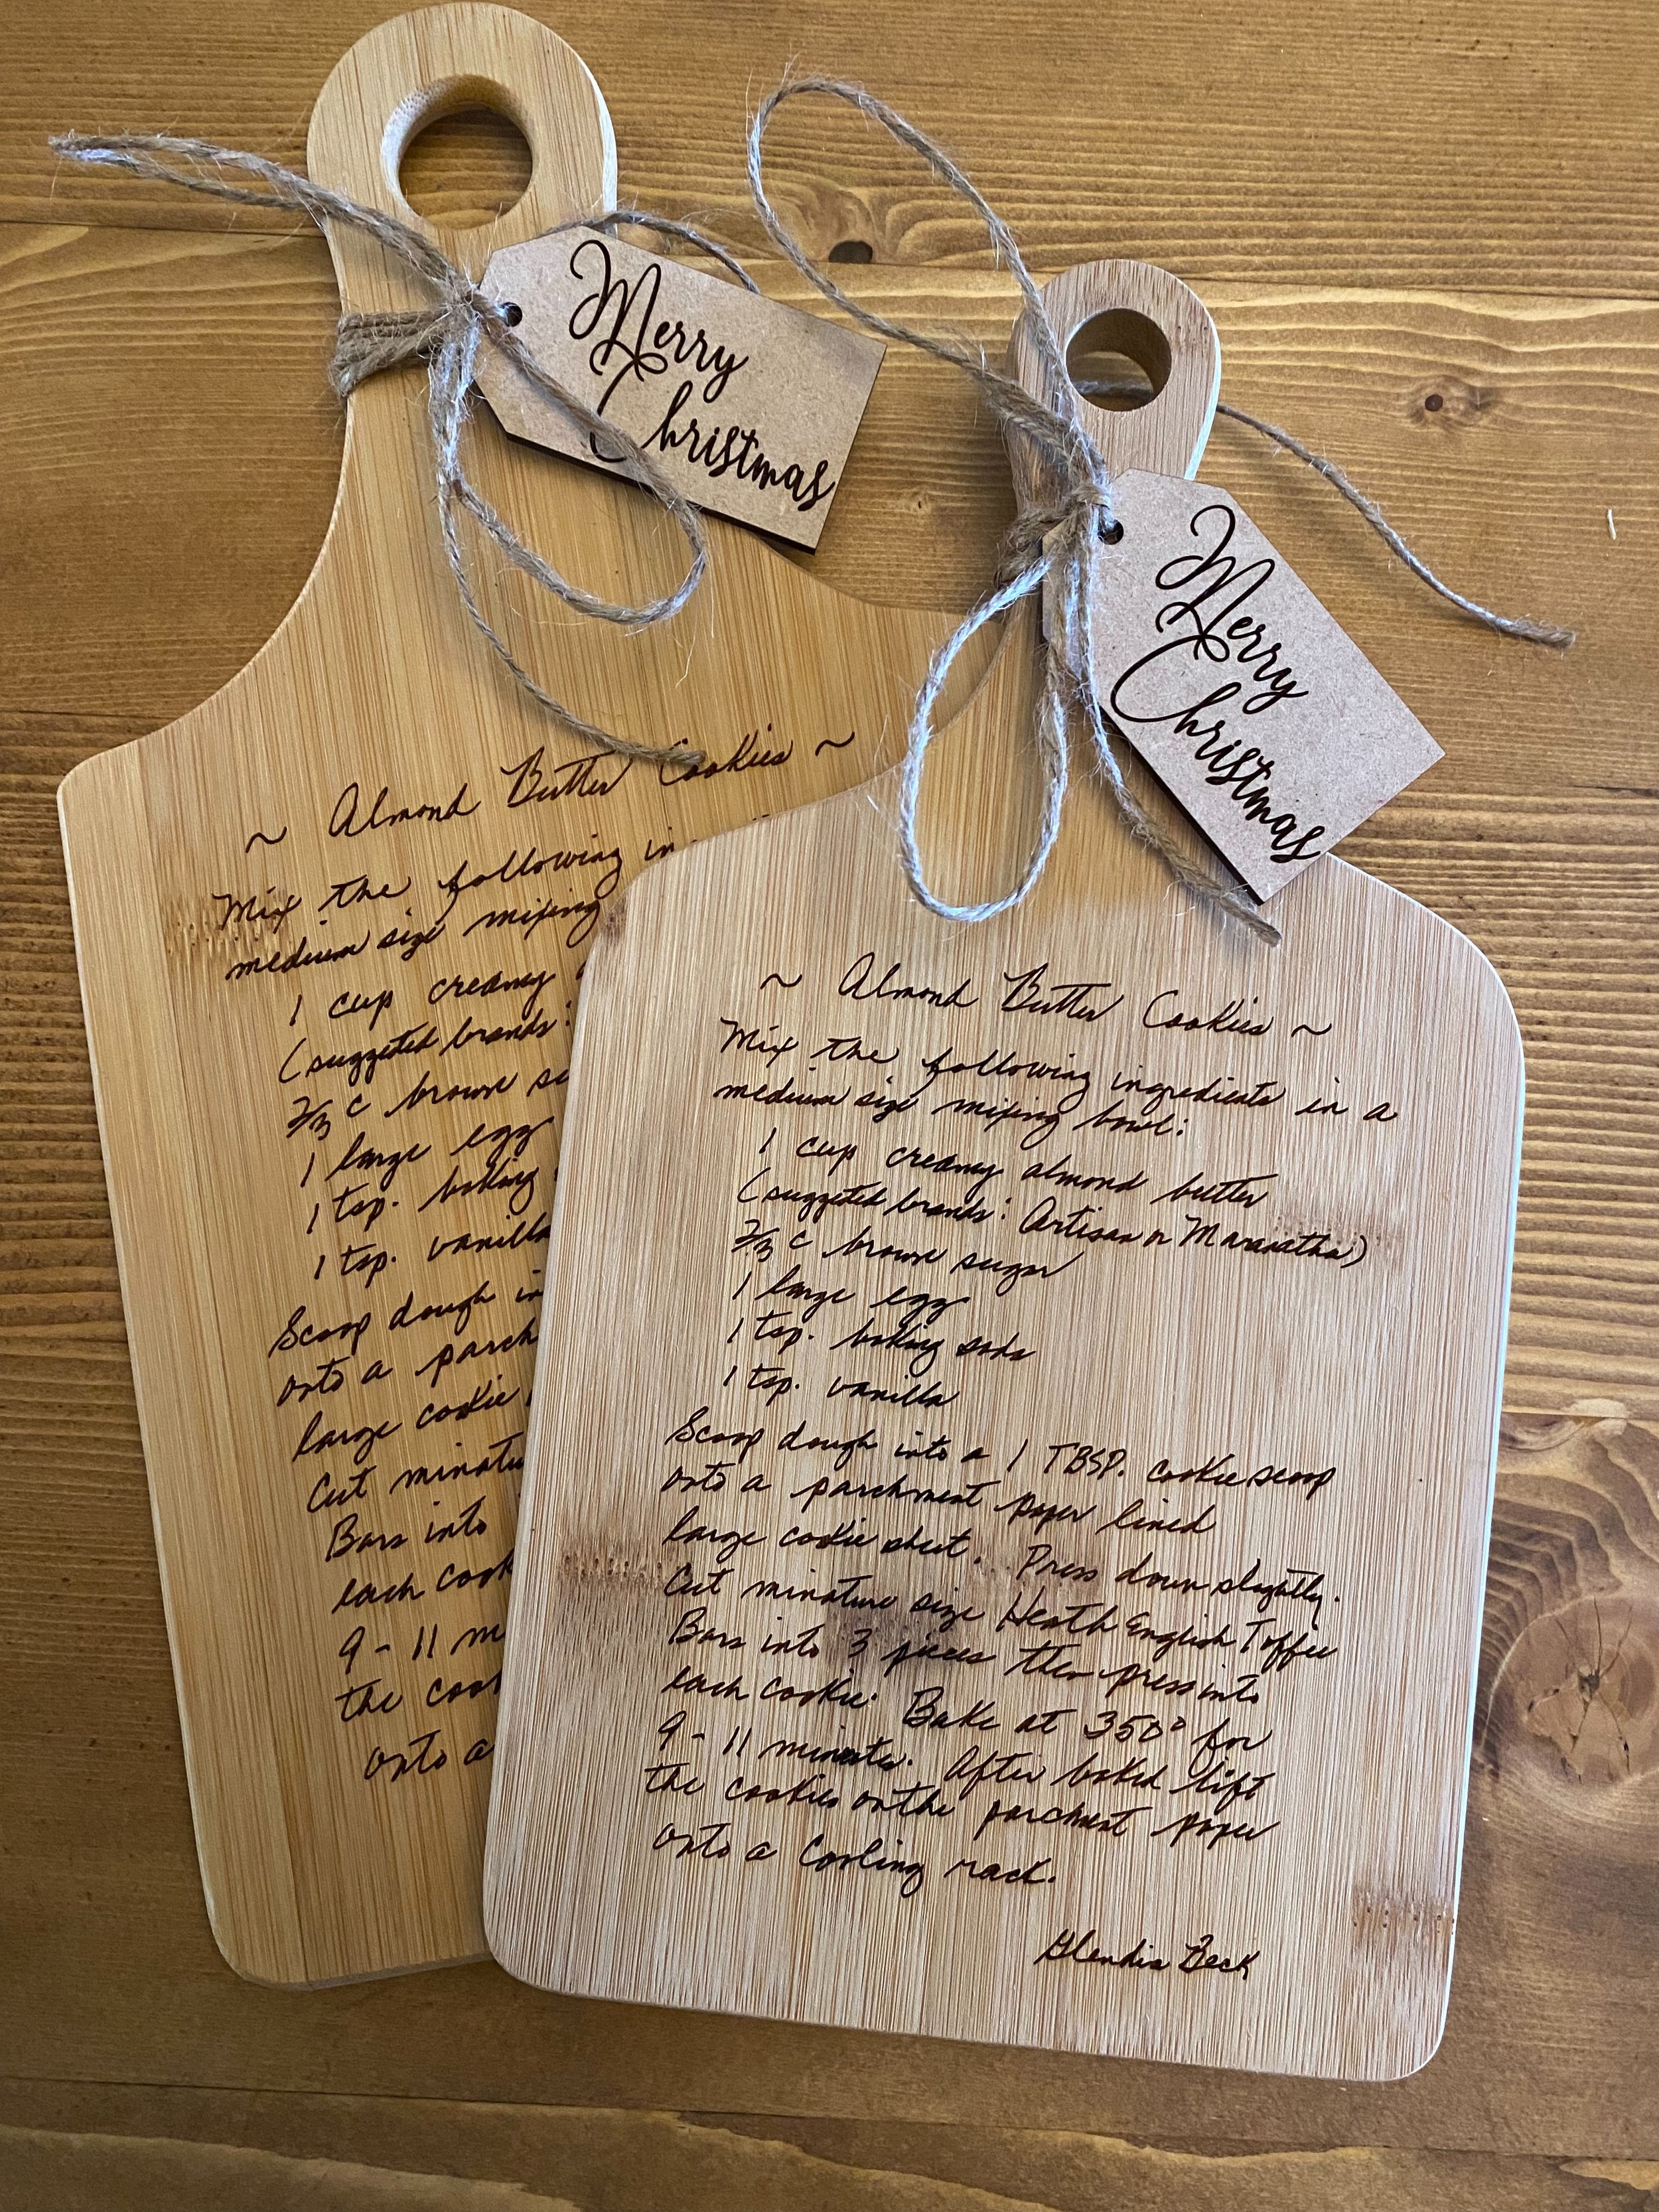 Merry
Christmas
Merry
Christmas
~ Almond Butter Cookies ~
Mix the following in
medium size mixing
1 cup creamy
(suggeted brands:
2/3 c brown su
1 large egg
1 tsp. baking
1 tsp. vanilla
Scoop dough in
onto a parch
large cookie
Cut minatu
Bars into
each cook
9 - 11 m
the cook
onto a
~ Almond Butter Cookies ~
Mix the following ingredients in a
medium size mixing bowl:
1 cup creamy almond butter
(suggeted brands: Artisan or Maranatha)
2/3 c brown sugar
1 large egg
1 tsp. baking soda
1 tsp. vanilla
Scoop dough into a 1 TBSP. cookie scoop
onto a parchment paper lined
large cookie sheet. Press down slightly.
Cut minature size Heath English Toffee
Bars into 3 pieces then press into
each cookie. Bake at 350° for
9 - 11 minutes. After baked lift
the cookies on the parchment paper
onto a cooling rack.
Glendia Beck